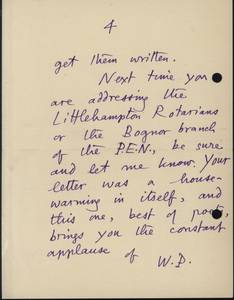 4
get them written.
Next time you
are addressing the
Littlehampton Rotarians
or the Bognor branch
of the P.E.N., be sure
and let me know. Your
letter was a house-
warming in itself, and
this one, best of post,
brings you the constant
applause of W.B.